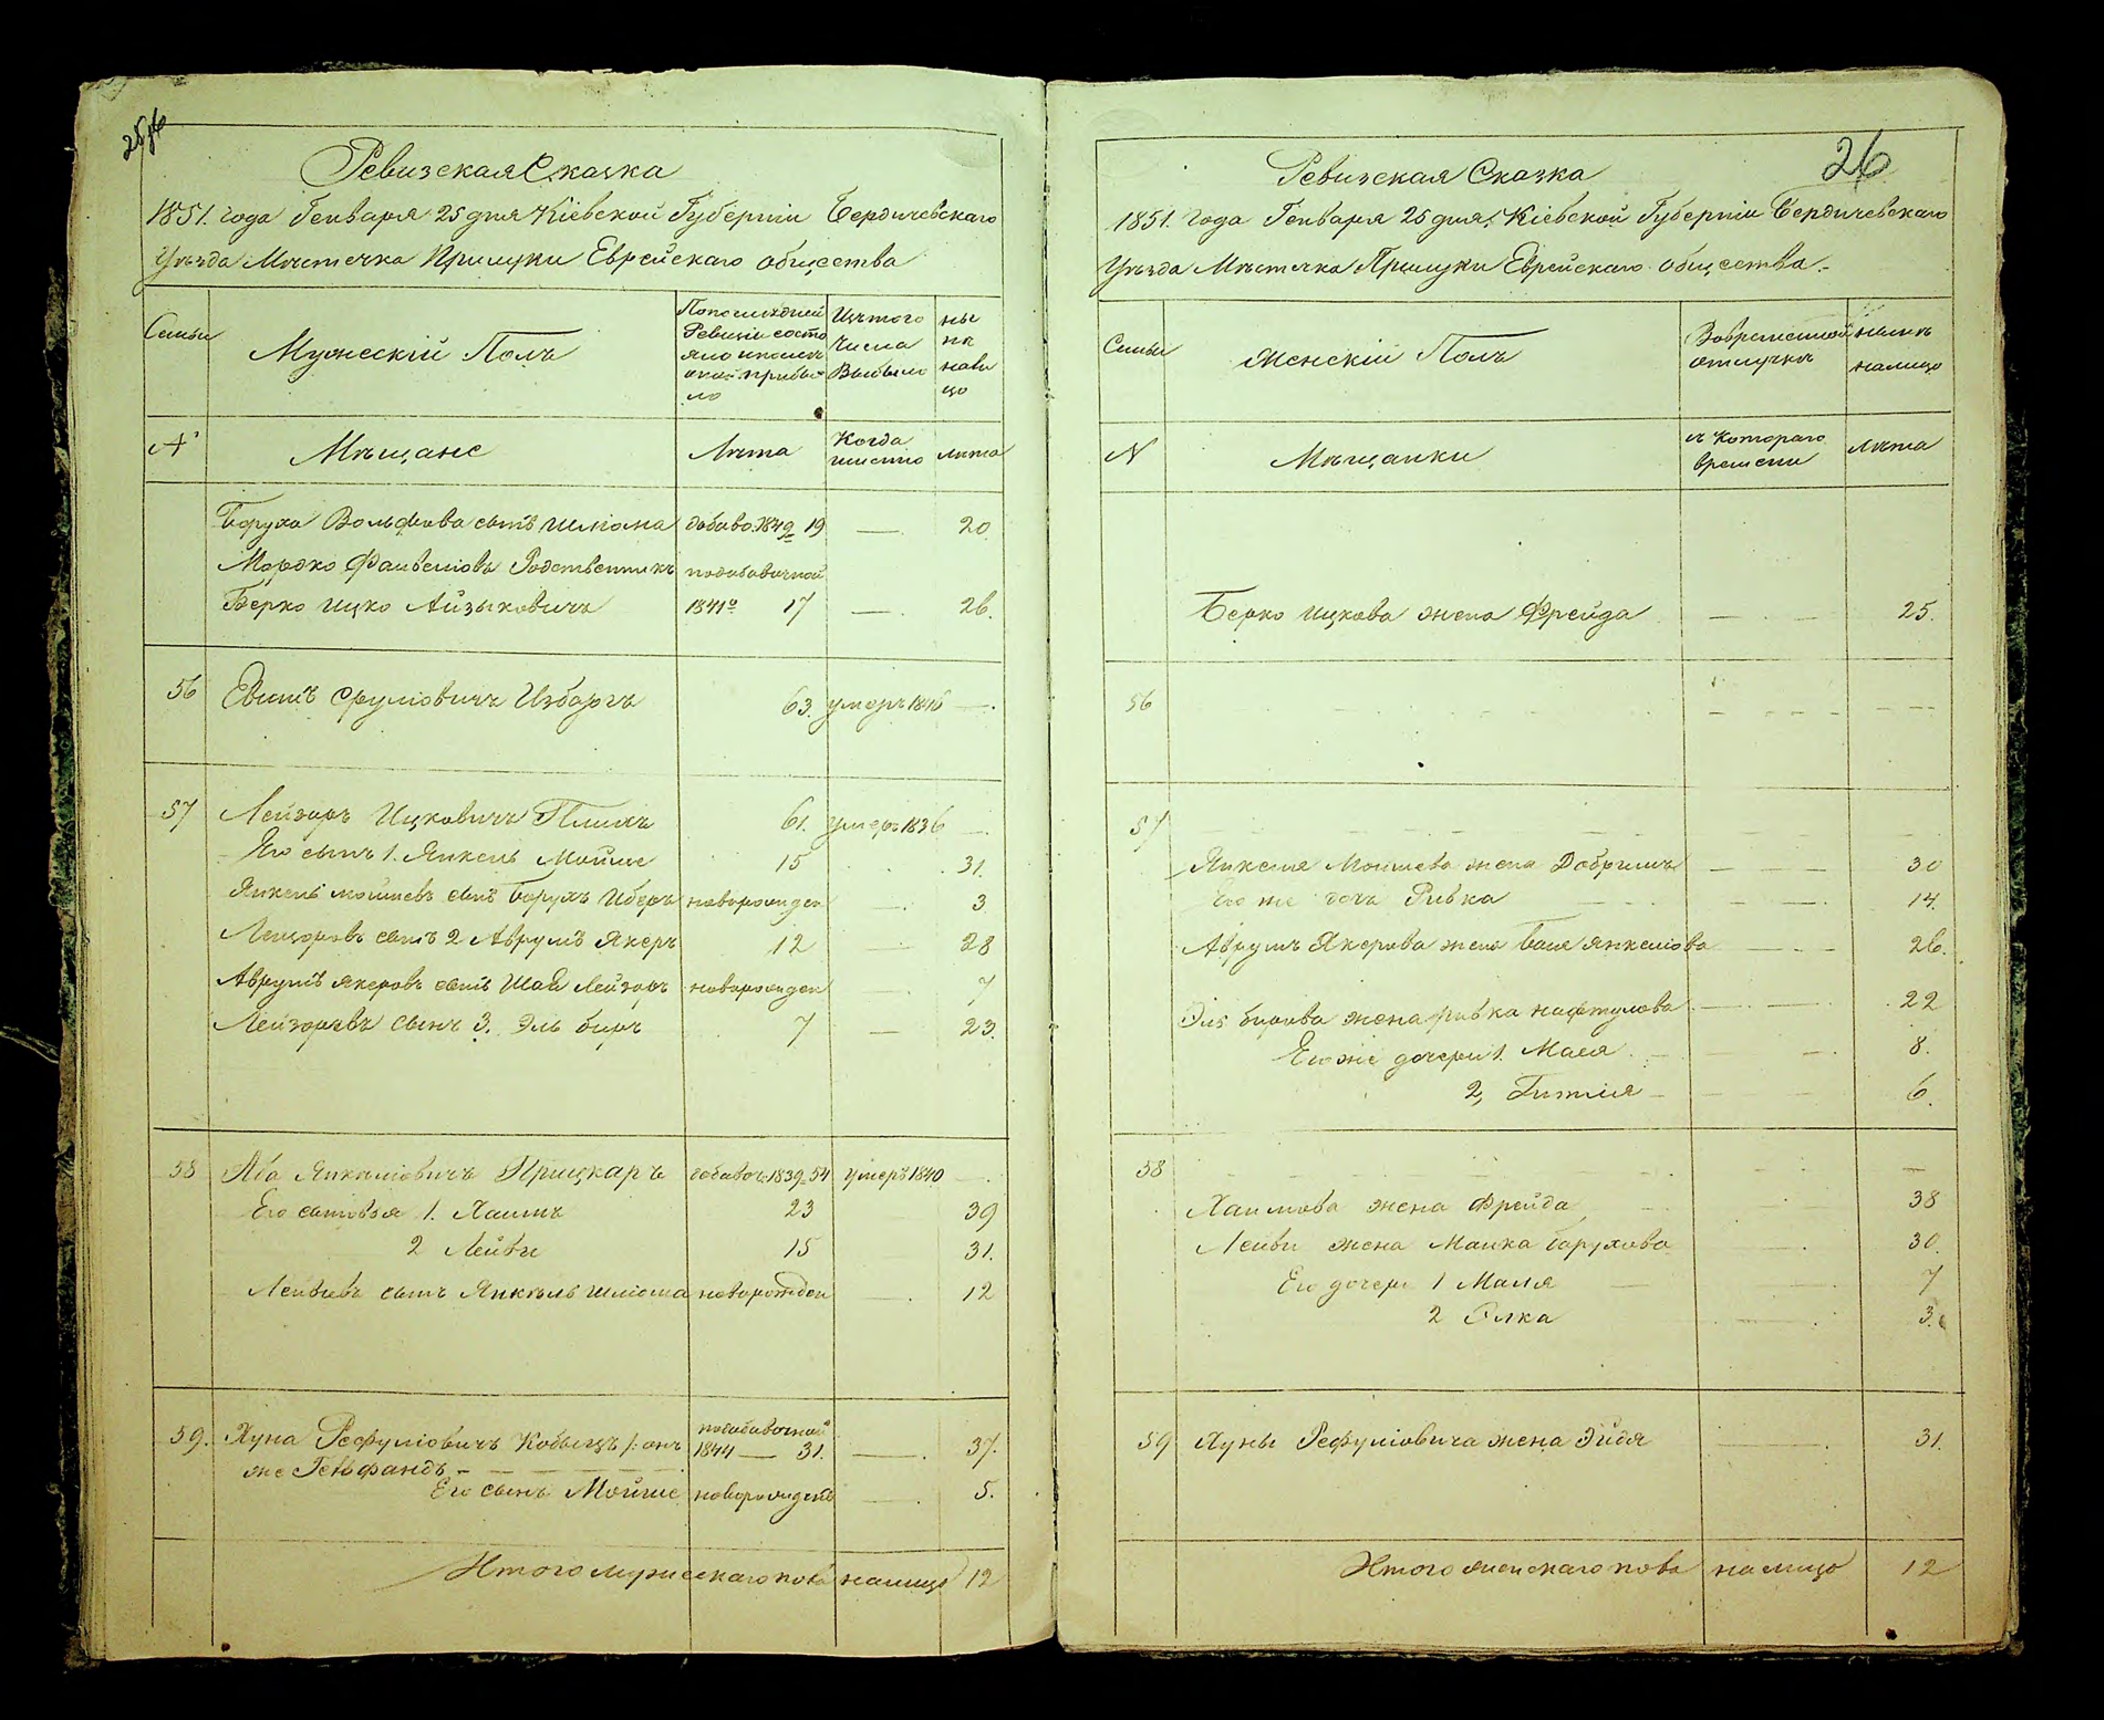 25об
Ревизская Сказка
1851. года Генваря 25 дня Кіевской Губерніи Бердичевскаго
Уѣзда Мѣстечка Прилуки Еврейскаго общества
Семьи
Мужескій Полъ
По последней Ревизіи состо яло и после оной прибы ло
Изъ того Числа Выбыло
Ны нѣ на ли цо
№
Мѣщане
Лѣта
Когда именно
лѣта
Боруха Вольфова сынъ Шліома добавоч. 1849 19 — 20
Мордко Файвелювъ Родственникъ по добавочной
Берко Ицко Айзыковичъ 1841 17 — 26.
56 Срулювичъ 63. умеръ 1846 —.
57 Лейзоръ Ицковичъ 61. умеръ 1836 —.
Его сынъ 1. Янкель Мойше 15 31.
Янкель Мойшевъ сынъ Борухъ новорожден — 3
Лейзоровъ сынъ 2 Аврумъ Якеръ 12 — 28
Аврумъ Якеровъ сынъ Шая Лейзоръ новорожден — 7
Лейзоровъ сынъ 3. Эль беръ 7 — 23.
58 Аба Янкелювичъ Прицкаръ добавоч. 1839 54 умеръ 1840 —.
Его сыновья 1. Хаимъ 23 39
2 Лейви 15 31.
Лейвievъ сынъ Янкѣль Шліома новорожден — 12
59. Хуна Рефулювичъ /: онъ по добавочной 1844 — 31. — 37.
же Гельфандъ
Его сынъ Мойше новорожденъ — 5.
Итого мужескаго пола на лицо 12
26
Ревизская Сказка
1851. года Генваря 25 дня. Кіевской Губерніи Бердичевскаго
Уѣзда Мѣстечка Прилуки Еврейскаго общества.
Семьи
Женскій Полъ
Во временной отлучкѣ
нынѣ на лицо
№
Мѣщанки
съ котораго времени
Лѣта
Берко Ицкова жена Фрейда — 25.
56
57
Янкеля Мойшева жена Добришъ — 30
Его же дочь Ривка — 14.
Аврумъ Якерова жена Бася Янкелюва — 26.
Эль Берова жена Ривка Нафтулова — 22
Его же дочери 1. Маля — 8.
2, Гитля — 6.
58
Хаимова жена Фрейда 38
Лейви жена Малка Борухова — 30.
Его дочери 1 Маля — 7
2 Элка — 3.
59 Хуны Рефулювича жена Эйдя — 31.
Итого женскаго пола на лицо 12